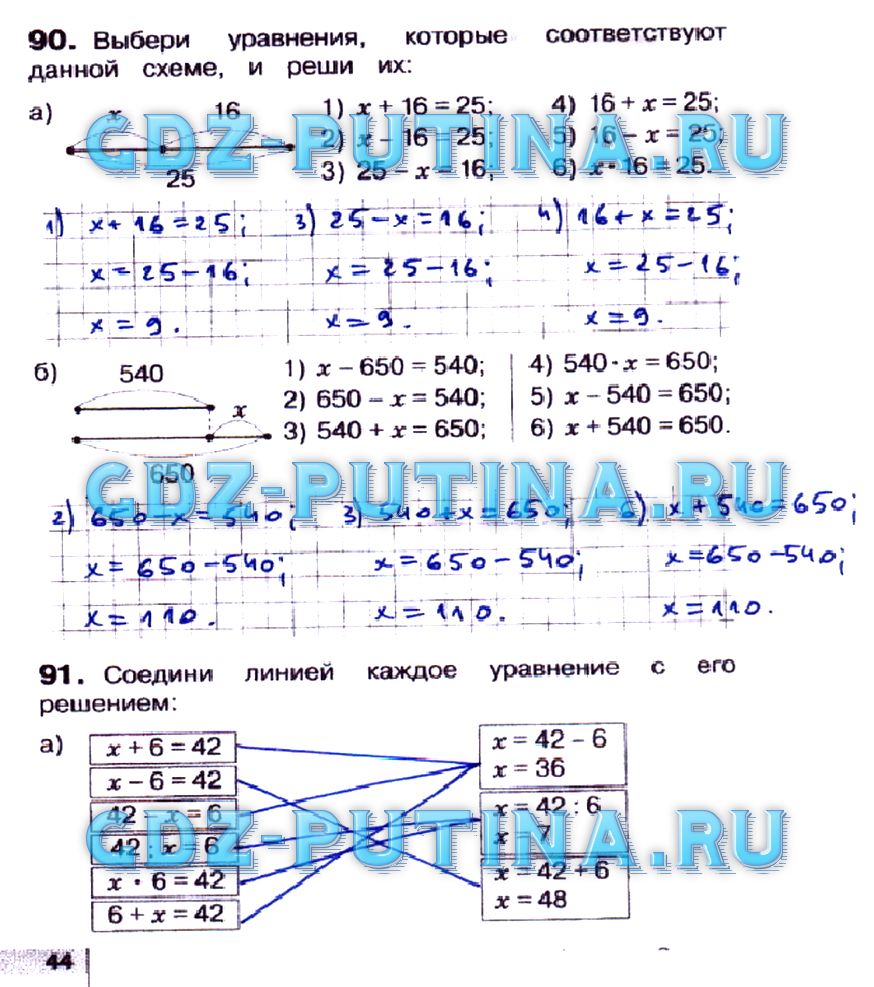 90. Выбери уравнения, которые соответствуют
данной схеме, и реши их:
а) x 16 25
1) x + 16 = 25; 4) 16 + x = 25;
2) x − 16 = 25; 5) 16 − x = 25;
3) 25 − x = 16; 6) x · 16 = 25.
GDZ-PUTINA.RU
1) x + 16 = 25; 3) 25 − x = 16; 4) 16 + x = 25;
x = 25 − 16; x = 25 − 16; x = 25 − 16;
x = 9. x = 9. x = 9.
б) 540 x 650
1) x − 650 = 540; 4) 540 · x = 650;
2) 650 − x = 540; 5) x − 540 = 650;
3) 540 + x = 650; 6) x + 540 = 650.
GDZ-PUTINA.RU
2) 650 − x = 540; 3) 540 + x = 650; 6) x + 540 = 650;
x = 650 − 540; x = 650 − 540; x = 650 − 540;
x = 110. x = 110. x = 110.
91. Соедини линией каждое уравнение с его
решением:
а) x + 6 = 42
x − 6 = 42
42 − x = 6
42 : x = 6
x · 6 = 42
6 + x = 42
x = 42 − 6
x = 36
x = 42 : 6
x = 7
x = 42 + 6
x = 48
GDZ-PUTINA.RU
44